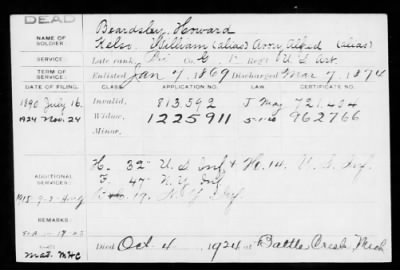 DEAD
NAME OF SOLDIER:
Beardsley, Howard
William (alias) Alfred (alias)
SERVICE:
Late rank, Pri Co. G, Reg't U.S. Art.
TERM OF SERVICE:
Enlisted Jan 7, 1869 Discharged Mar 7, 1874
DATE OF FILING. CLASS. APPLICATION NO. LAW. CERTIFICATE NO.
1890 July 16. Invalid, 813592 J May 721.404
1924 Nov. 24 Widow, 1225911 5-1-20 962766
Minor,
ADDITIONAL SERVICES:
H. 32" U.S. Inf. & H. 14. U.S. Inf.
F. 47" N.Y. Inf
19. N.Y.
REMARKS:
Died Oct 4, 1924 at Battle Creek, Mich